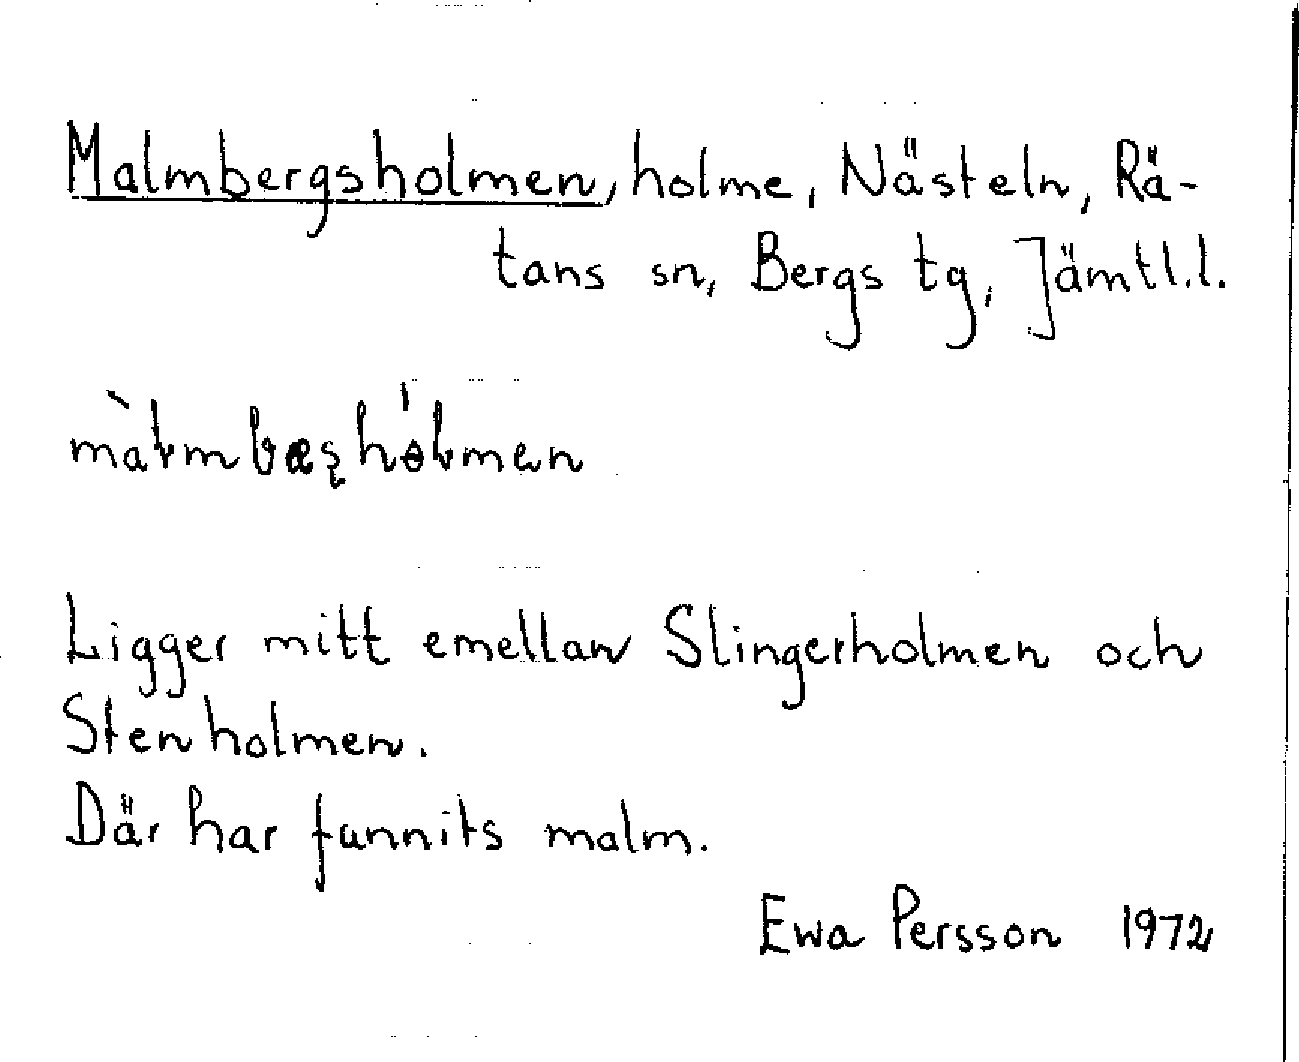 Malmbergsholmen, holme, Nästeln, Rä-
tans sn, Bergs tg, Jämtl.l.
Ligger mitt emellan Slingerholmen och
Stenholmen.
Där har funnits malm.
Ewa Persson 1972